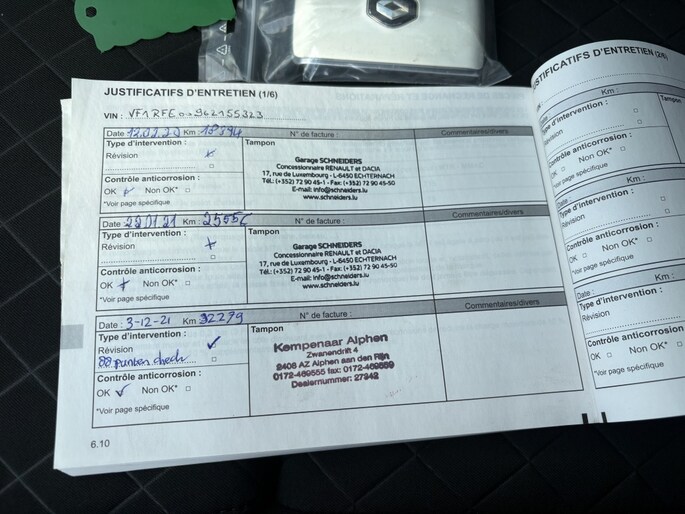 JUSTIFICATIFS D'ENTRETIEN (1/6)
VIN : VF1RFE00962155323
Date 12.02.20 Km : 18394 N° de facture : Commentaires/divers
Type d'intervention : Tampon
Révision
Contrôle anticorrosion :
OK Non OK*
*Voir page spécifique
Garage SCHNEIDERS
Concessionnaire RENAULT et DACIA
17, rue de Luxembourg - L-6450 ECHTERNACH
Tél.: (+352) 72 90 45-1 - Fax: (+352) 72 90 45-50
E-mail: info@schneiders.lu
www.schneiders.lu
Date : 22.01.21 Km : N° de facture : Commentaires/divers
Type d'intervention : Tampon
Révision
Contrôle anticorrosion :
OK Non OK*
*Voir page spécifique
Garage SCHNEIDERS
Concessionnaire RENAULT et DACIA
17, rue de Luxembourg - L-6450 ECHTERNACH
Tél.: (+352) 72 90 45-1 - Fax: (+352) 72 90 45-50
E-mail: info@schneiders.lu
www.schneiders.lu
Date : 3-12-21 Km 32279 N° de facture : Commentaires/divers
Type d'intervention : Tampon
Révision
88 punten check
Contrôle anticorrosion :
OK Non OK*
*Voir page spécifique
Kempenaar Alphen
Zwanendrift 4
2408 AZ Alphen aan den Rijn
Dealernummer: 27242
6.10
JUSTIFICATIFS D'ENTRETIEN (2/6)
Km :
Date :
Type d'intervention : Tampon
Révision
Contrôle anticorrosion :
OK Non OK*
*Voir page spécifique
Km :
Type d'intervention :
Révision
Contrôle anticorrosion :
OK Non OK*
*Voir page spécifique
Date : Km :
Type d'intervention :
Révision
Contrôle anticorrosion :
OK Non OK*
*Voir page spécifique